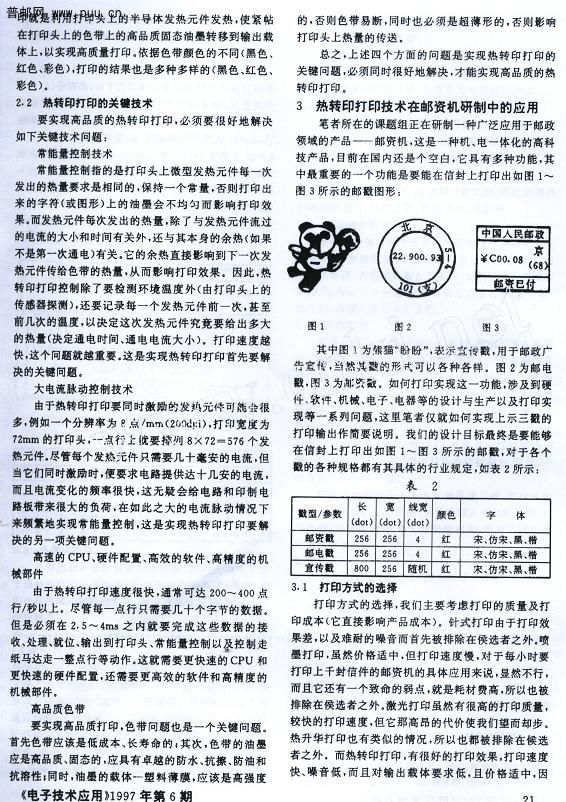 普邮网 www.puu.cn
印就是利用打印头上的半导体发热元件发热,使紧帖
在打印头上的色带上的高品质固态油墨转移到输出载
体上,以实现高质量打印。依据色带颜色的不同(黑色、
红色、彩色),打印的结果也是多种多样的(黑色、红色、
彩色)。
2.2 热转印打印的关键技术
要实现高品质的热转印打印,必须要很好地解决
如下关键技术问题:
常能量控制技术
常能量控制指的是打印头上微型发热元件每一次
发出的热量要求是相同的,保持一个常量,否则打印出
来的字符(或图形)上的油墨会不均匀而影响打印效
果。而发热元件每次发出的热量,除了与发热元件流过
的电流的大小和时间有关外,还与其本身的余热(如果
不是第一次通电)有关。它的余热直接影响到下一次发
热元件传给色带的热量,从而影响打印效果。因此,热
转印打印控制除了要检测环境温度外(由打印头上的
传感器探测),还要记录每一个发热元件前一次,甚至
前几次的温度,以决定这次发热元件究竟要给出多大
的热量(决定通电时间、通电电流大小)。打印速度越
快,这个问题就越重要。这是实现热转印打印首先要解
决的关键问题。
大电流脉动控制技术
由于热转印打印要同时激励的发热元件可能会很
多,例如一个分辨率为8点/mm(200dpi),打印宽度为
72mm的打印头,一点行上就要排列8×72=576个发
热元件。尽管每个发热元件只需要几十毫安的电流,但
当它们同时激励时,便要求电路提供达十几安的电流,
而且电流变化的频率很快,这无疑会给电路和印制电
路板带来很大的负荷,在如此之大的电流脉动情况下
来频繁地实现常能量控制,这是实现热转印打印要解
决的另一项关键问题。
高速的CPU、硬件配置、高效的软件、高精度的机
械部件
由于热转印打印速度很快,通常可达200~400点
行/秒以上。尽管每一点行只需要几十个字节的数据。
但是必须在2.5~4ms之内就要完成这些数据的接
收、处理、就位、输出到打印头、常能量控制以及控制走
纸马达走一整点行等动作。这就需要更快速的CPU和
更快速的硬件配置,还需要更高效的软件和高精度的
机械部件。
高品质色带
要实现高品质打印,色带问题也是一个关键问题。
首先色带应该是低成本、长寿命的;其次,色带的油墨
应是高品质、固态的,应具有卓越的防水、抗擦、防油和
抗溶性;同时,油墨的载体—塑料薄膜,应该是高强度
《电子技术应用》1997年第6期
的,否则色带易断,同时也必须是超薄形的,否则影响
打印头上热量的传送。
总之,上述四个方面的问题是实现热转印打印的
关键问题,必须同时很好地解决,才能实现高品质的热
转印打印。
3 热转印打印技术在邮资机研制中的应用
笔者所在的课题组正在研制一种广泛应用于邮政
领域的产品——邮资机,这是一种机、电一体化的高科
技产品,目前在国内还是个空白,它具有多种功能,其
中最重要的一个功能是要能在信封上打印出如图1~
图3所示的邮戳图形:
北京
22.900.93
5-4
101(支)
中国人民邮政
京
¥C00.08 (68)
邮资已付
图1 图2 图3
其中图1为熊猫“盼盼”,表示宣传戳,用于邮政广
告宣传,当然其戳的形式可以各种各样。图2为邮电
戳,图3为邮资戳。如何打印实现这一功能,涉及到硬
件、软件、机械、电子、电器等的设计与生产以及打印实
现等一系列问题,这里笔者仅就如何实现上示三戳的
打印输出作简要说明。我们的设计目标最终是要能够
在信封上打印出如图1~图3所示的邮戳,对于各个
戳的各种规格都有其具体的行业规定,如表2所示:
表 2
戳型/参数 长(dot) 宽(dot) 线宽(dot) 颜色 字 体
邮资戳 256 256 4 红 宋、仿宋、黑、楷
邮电戳 256 256 4 红 宋、仿宋、黑、楷
宣传戳 800 256 随机 红 宋、仿宋、黑、楷
3.1 打印方式的选择
打印方式的选择,我们主要考虑打印的质量及打
印成本(它直接影响产品成本)。针式打印由于打印效
果差,以及难耐的噪音而首先被排除在侯选者之外。喷
墨打印,虽然价格适中,但打印速度慢,对于每小时要
打印上千封信件的邮资机的具体应用来说,显然不行,
而且它还有一个致命的弱点,就是耗材费高,所以也被
排除在侯选者之外。激光打印虽然有很高的打印质量,
较快的打印速度,但它那高昂的代价使我们望而却步。
热升华打印也有类似的情况,所以也都被排除在候选
者之外。而热转印打印,有很好的打印效果,打印速度
快、噪音低,而且对输出载体要求低,且价格适中,因
21